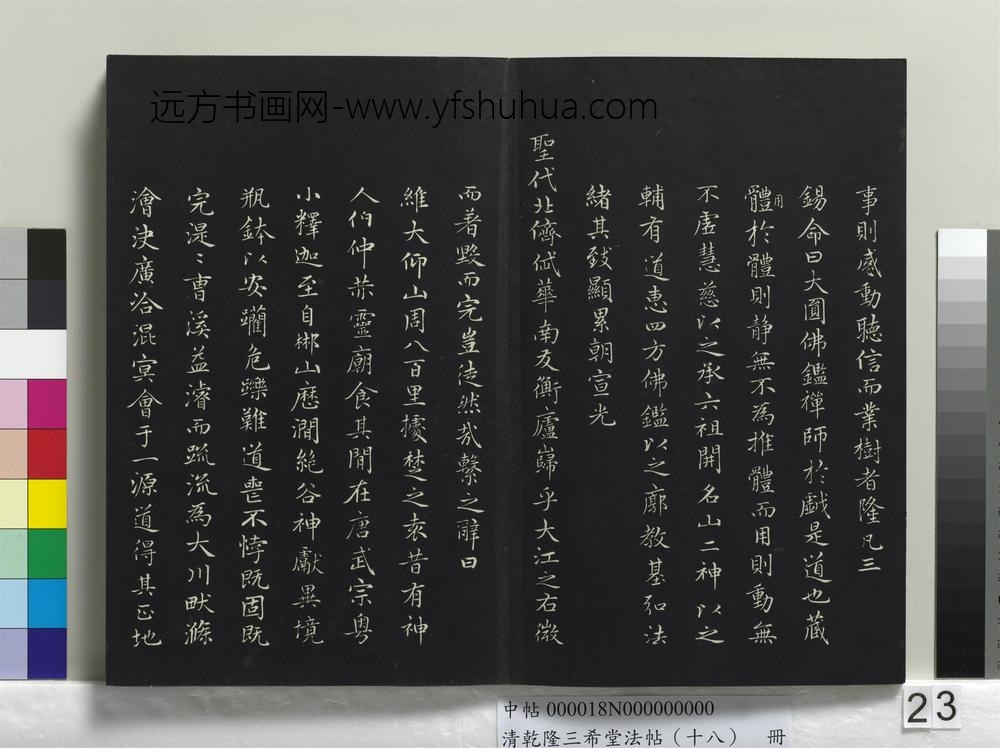 远方书画网-www.yfshuhua.com
事則感動聽信而業樹者隆凡三
錫命曰大圓佛鑑禪師於戲是道也藏
用
體於體則靜無不為推體而用則動無
不虛慧慈以之承六祖開名山二神以之
輔有道惠四方佛鑑以之廓教基弘法
緒其致顯累朝宣光
聖代北儕岱華南友衡廬巋乎大江之右微
而著毀而完豈徒然哉繫之辭曰
維大仰山周八百里據楚之袁昔有神
人伯仲恭靈廟食其間在唐武宗粵
小釋迦至自郴山歷澗絕谷神獻異境
瓶鉢以安躪危躒難道喪不悖既固既
完湜〻曹溪益濬而疏流為大川畎滌
澮決廣洽混冥會于一源道得其正地
中帖 000018N000000000
清乾隆三希堂法帖（十八） 冊
23